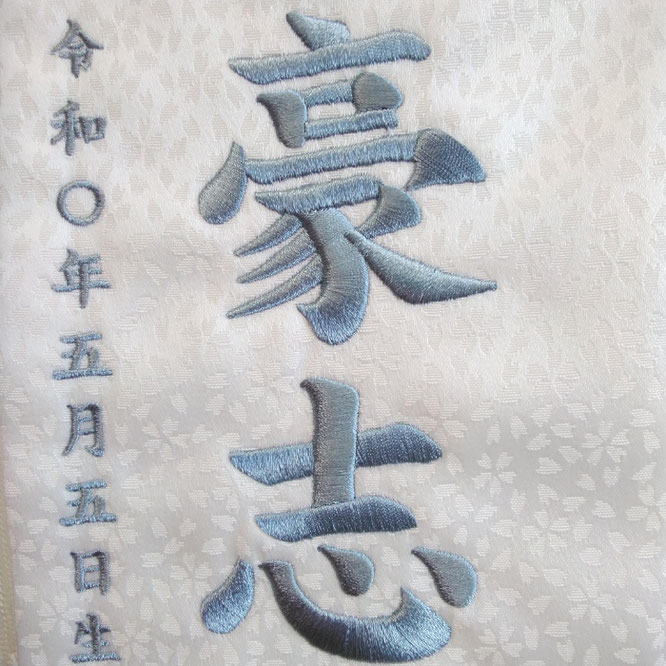 豪志
令和〇年五月五日生